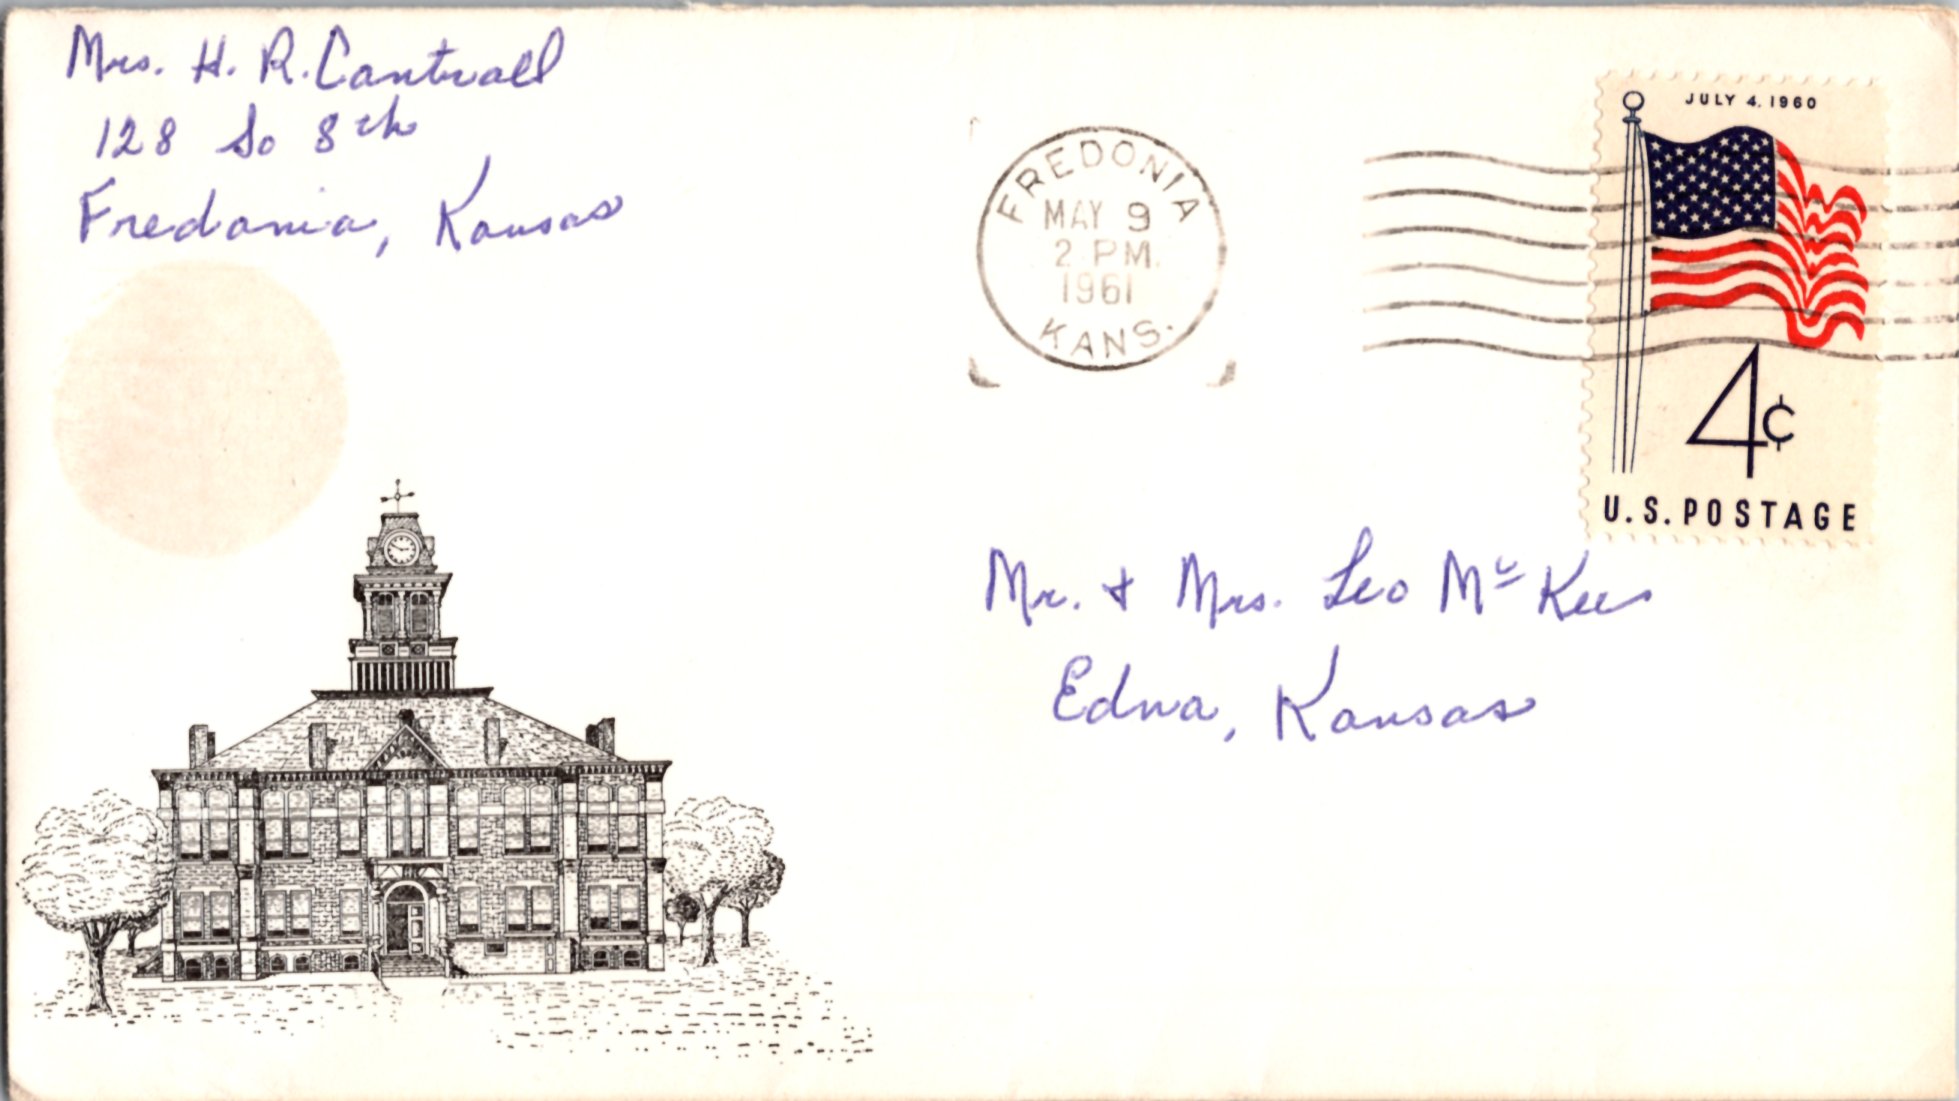 Mrs. H. R. Cantrall
128 So 8th
Fredonia, Kansas
FREDONIA
MAY 9
2 PM.
1961
KANS.
JULY 4, 1960
4¢
U.S. POSTAGE
Mr. + Mrs. Leo McKee
Edna, Kansas